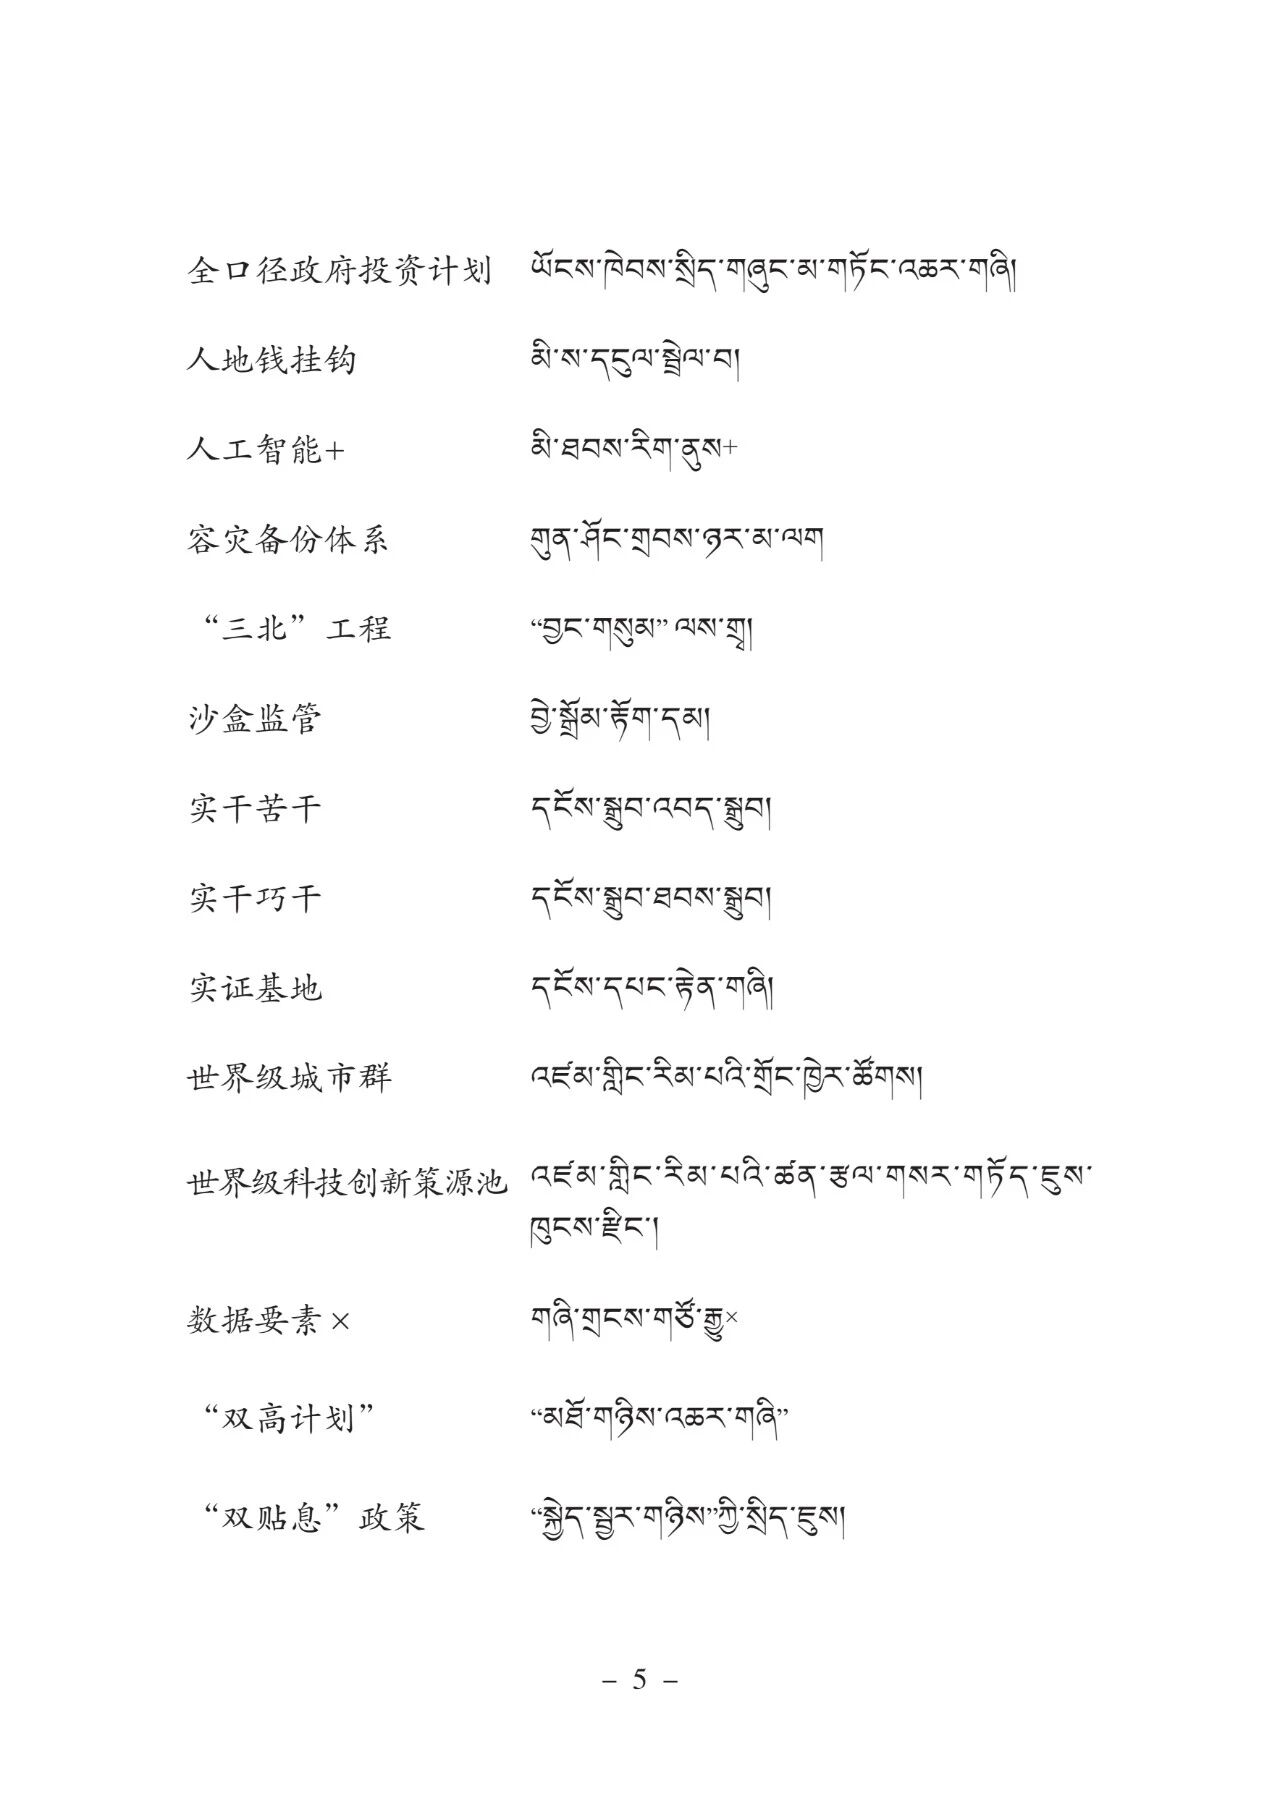 全口径政府投资计划 ཡོངས་ཁེབས་སྲིད་གཞུང་མ་གཏོང་འཆར་གཞི།
人地钱挂钩 མི་ས་དངུལ་སྦྲེལ་བ།
人工智能+ མི་ཐབས་རིག་ནུས+
容灾备份体系 གུན་ཤོང་གྲབས་ཉར་མ་ལག
“三北”工程 “བྱང་གསུམ” ལས་གྲྭ།
沙盒监管 བྱེ་སྒྲོམ་རྟོག་དམ།
实干苦干 དངོས་སྒྲུབ་འབད་སྒྲུབ།
实干巧干 དངོས་སྒྲུབ་ཐབས་སྒྲུབ།
实证基地 དངོས་དཔང་རྟེན་གཞི།
世界级城市群 འཛམ་གླིང་རིམ་པའི་གྲོང་ཁྱེར་ཚོགས།
世界级科技创新策源池 འཛམ་གླིང་རིམ་པའི་ཚན་རྩལ་གསར་གཏོད་ཇུས་
ཁུངས་རྫིང་།
数据要素× གཞི་གྲངས་གཙོ་རྒྱུ×
“双高计划” “མཐོ་གཉིས་འཆར་གཞི”
“双贴息”政策 “སྐྱེད་སྦྱར་གཉིས”ཀྱི་སྲིད་ཇུས།
– 5 –